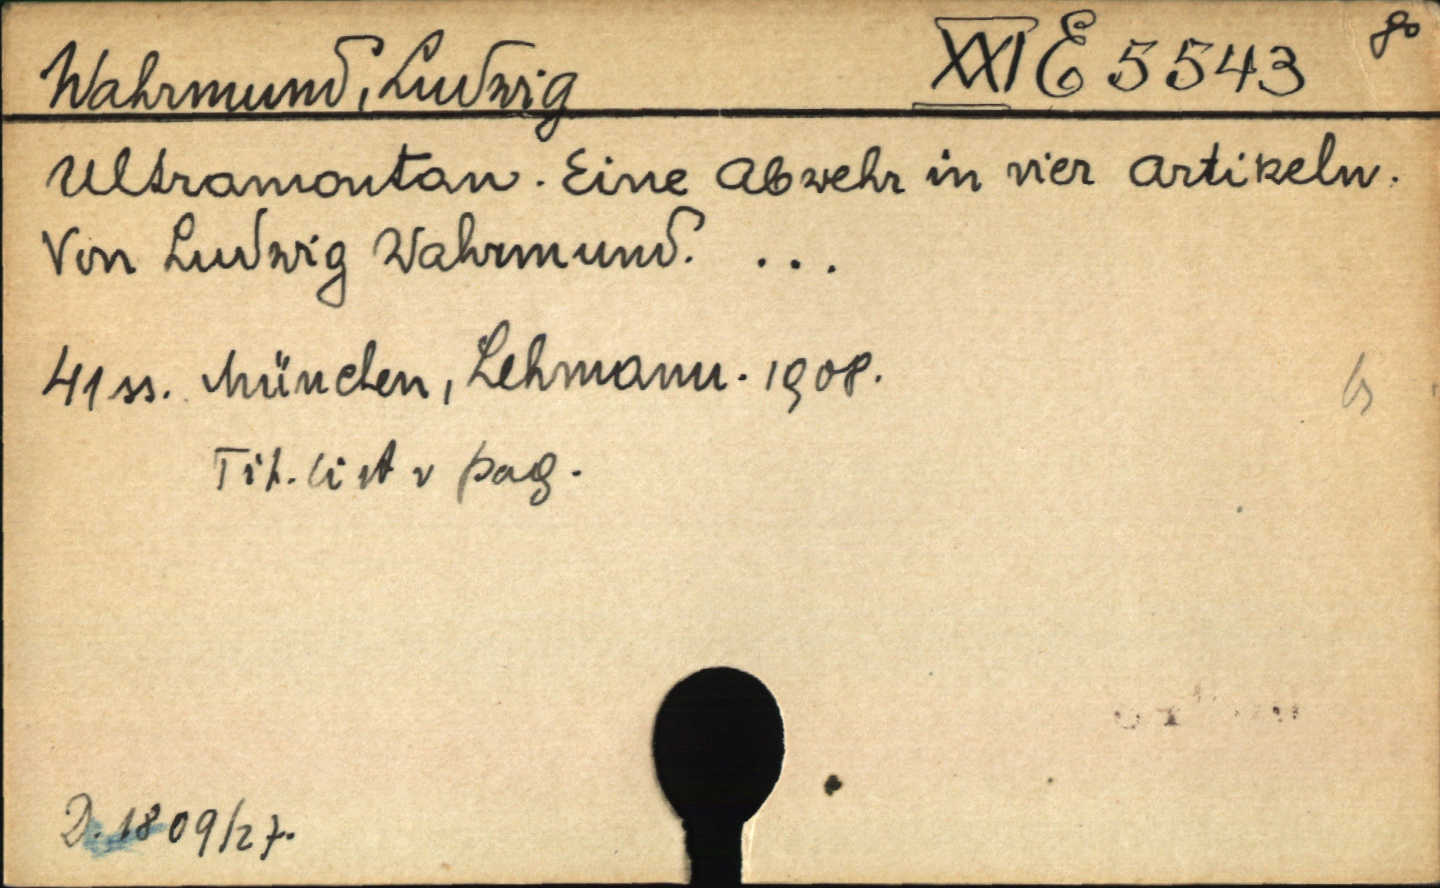 Wahrmund, Ludwig XXI E 5543 8°
Ultramontan. Eine Abwehr in vier Artikeln.
Von Ludwig Wahrmund. ...
41 ss. München, Lehmann. 1908.
Tit. list v pag.
D. 1809/27.